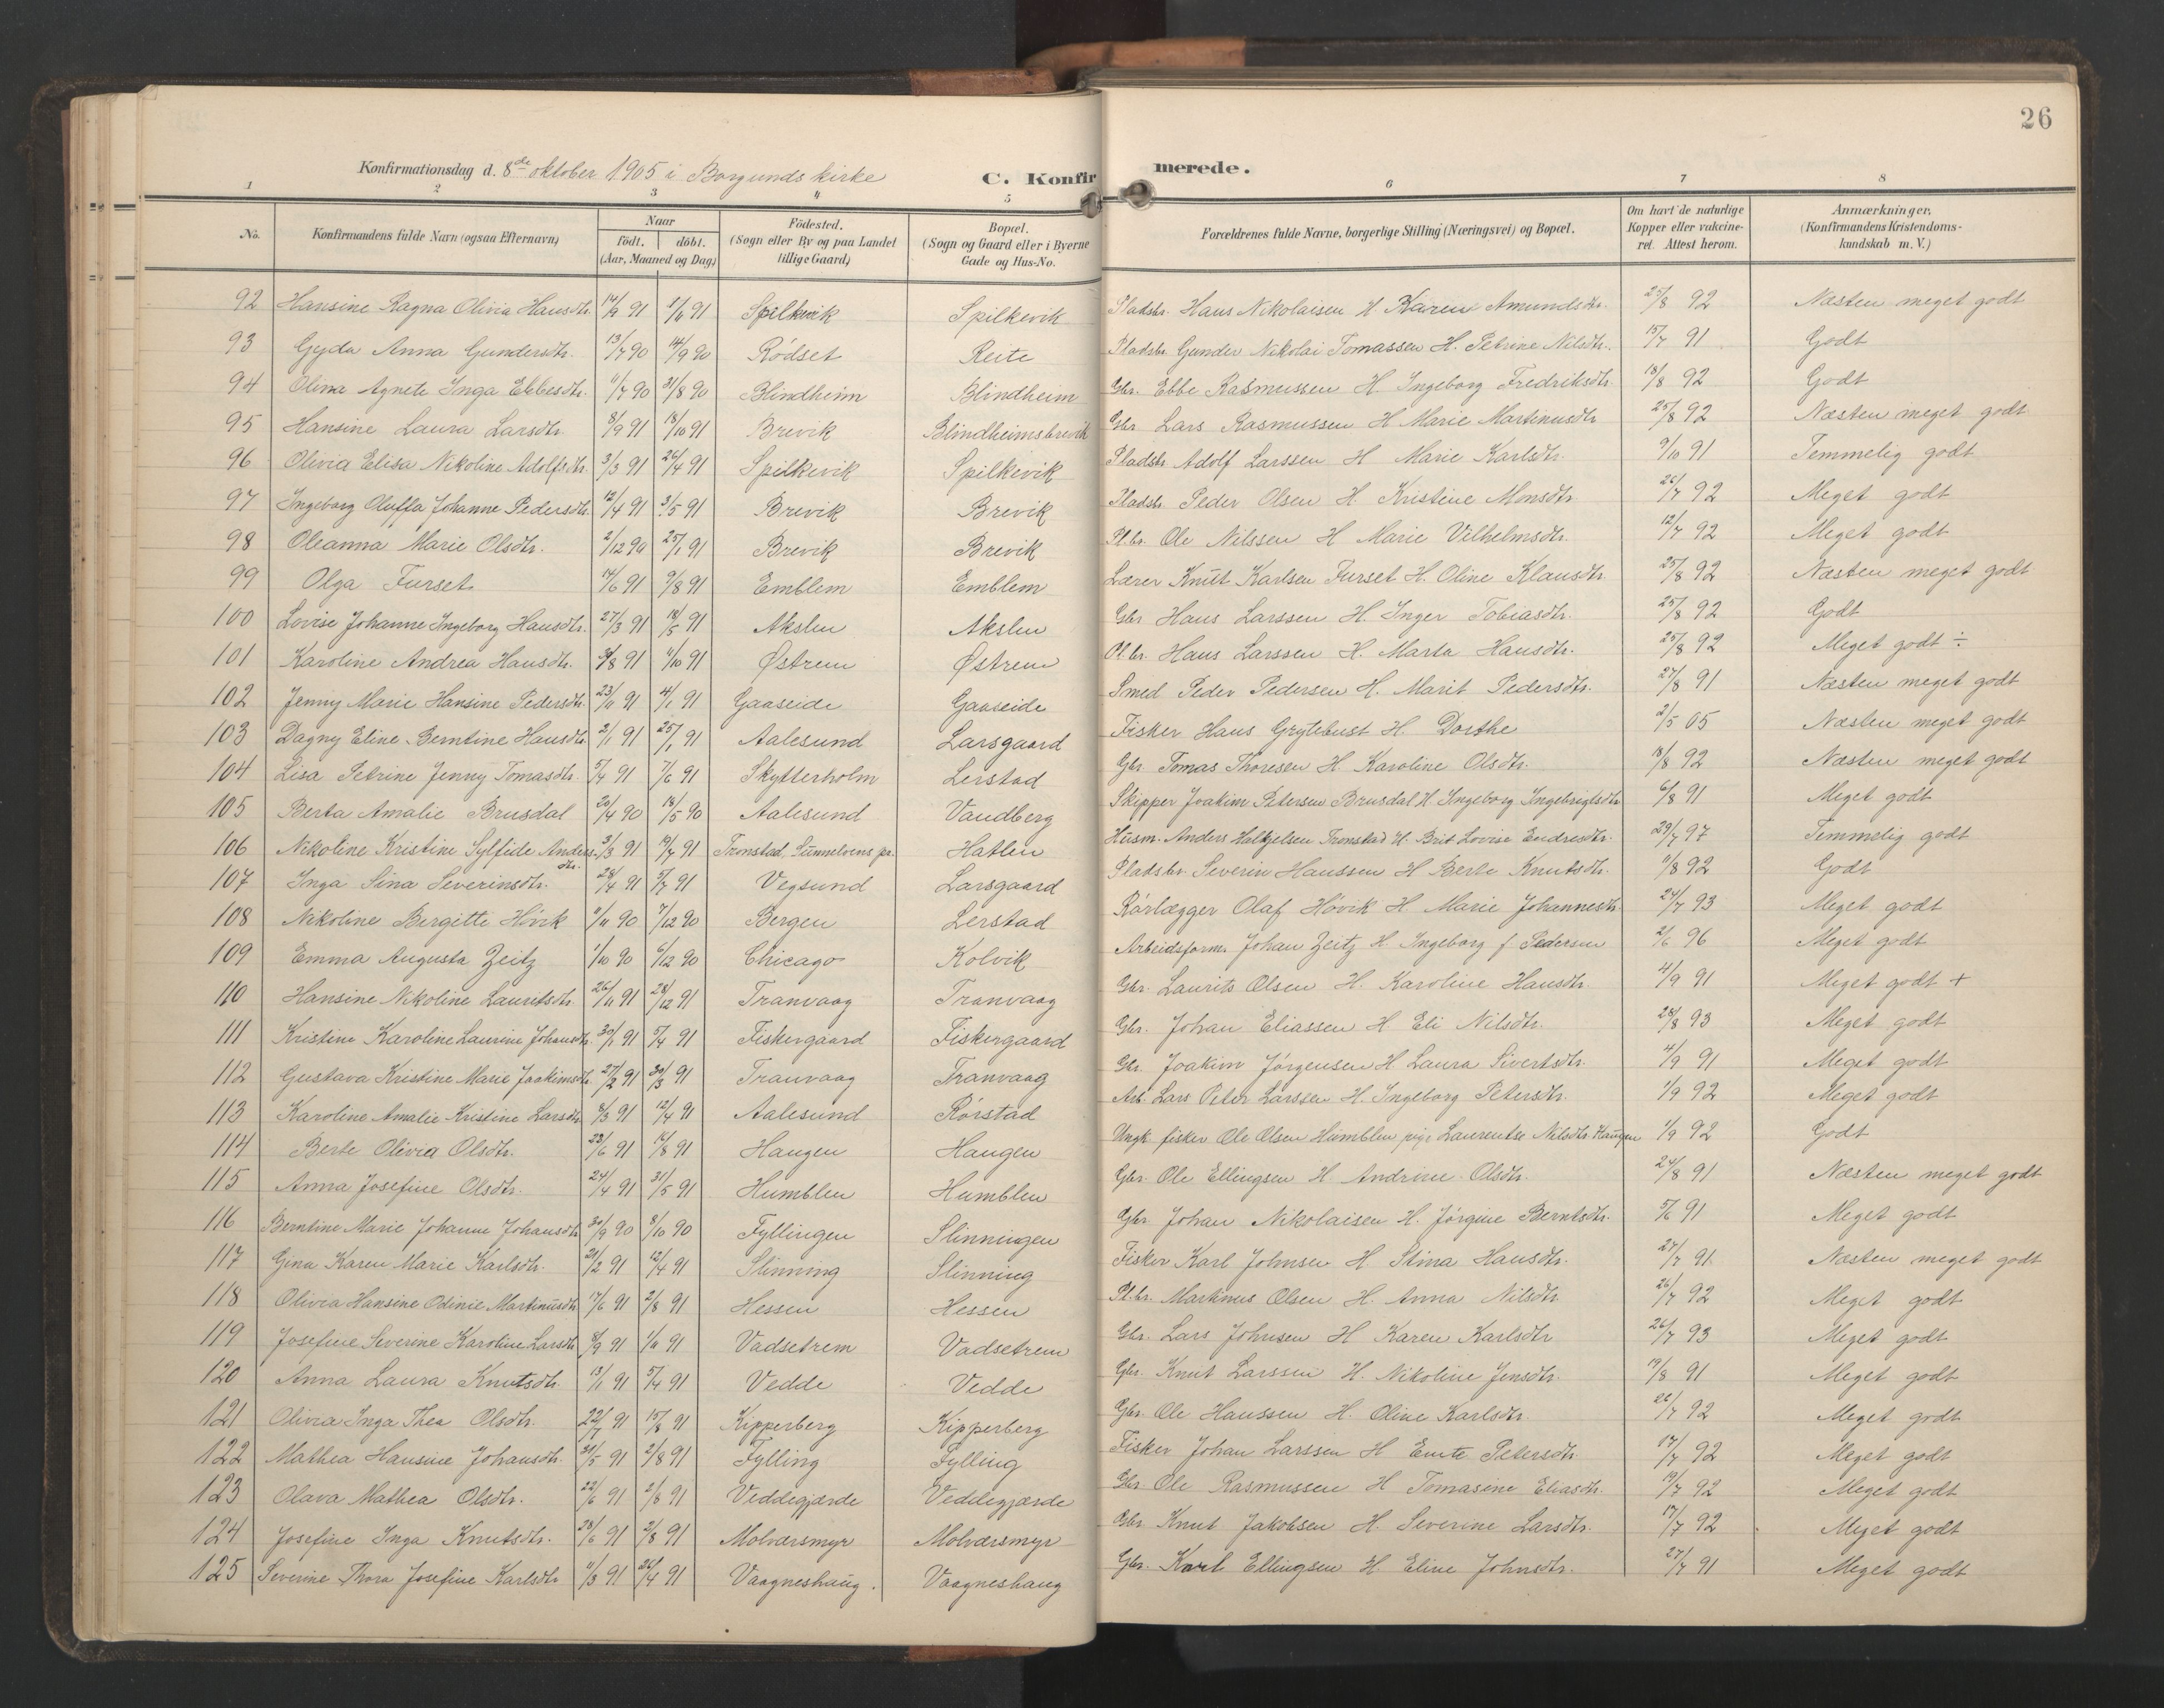 26
Konfirmationsdag d. 8de oktober 1905 i Borgunds kirke
C. Konfirmerede.
1 2 3 4 5 6 7 8
No. | Konfirmandens fulde Navn (ogsaa Efternavn) | Naar födt. döbt. (Aar, Maaned og Dag) | Födested. (Sogn eller By og paa Landet tillige Gaard) | Bopæl. (Sogn og Gaard eller i Byerne Gade og Hus-No. | Forældrenes fulde Navne, borgerlige Stilling (Næringsvei) og Bopæl. | Om havt de naturlige Kopper eller vakcineret. Attest herom. | Anmærkninger. (Konfirmandens Kristendomskundskab m. V.)
92 Hansine Ragna Olivia Hansdtr. 14/9 91 1/11 91 Spilkevik Spilkevik Pladsbr. Hans Nikolaisen H. Karen Amundsdtr. 25/8 92 Næsten meget godt
93 Gyda Anna Gundersdtr. 13/7 90 14/9 90 Rödset Reite Pladsbr. Gunder Nikolai Tomassen H. Petrine Nilsdtr. 15/7 91 Godt
94 Olina Agnete Inga Ebbesdtr. 11/7 90 31/8 90 Blindheim Blindheim Gbr. Ebbe Rasmussen H Ingeborg Fredriksdtr. 18/8 92 Godt
95 Hansine Laura Larsdtr. 8/9 91 18/10 91 Brevik Blindheimsbrevik Gbr Lars Rasmussen H Marie Martinusdtr 25/8 92 Næsten meget godt
96 Olivia Elisa Nikoline Adolfsdtr. 3/3 91 26/4 91 Spilkevik Spilkevik Pladsbr. Adolf Larssen H Marie Karlsdtr. 9/10 91 Temmelig godt
97 Ingeborg Oluffa Johanne Pedersdtr. 12/4 91 3/5 91 Brevik Brevik Pladsbr. Peder Olsen H. Kristine Monsdtr 26/7 92 Meget godt
98 Oleanna Marie Olsdtr. 2/12 90 25/1 91 Brevik Brevik Pl.br. Ole Nilssen H Marie Vilhelmsdtr. 12/7 92 Meget godt
99 Olga Furset 14/6 91 9/8 91 Emblem Emblem Lærer Knut Karlsen Furset H. Oline Klausdtr 25/8 92 Næsten meget godt
100 Lovise Johanne Ingeborg Hansdtr. 27/3 91 18/5 91 Akslen Akslen Gbr Hans Larssen H. Inger Tobiasdtr. 25/8 92 Godt
101 Karoline Andrea Hansdtr. 3/8 91 11/10 91 Østrem Østrem Pl.br. Hans Larssen H. Marta Hansdtr. 25/8 92 Meget godt ÷
102 Jenny Marie Hansine Pedersdtr. 23/11 91 4/1 91 Gaaseide Gaaseide Smed Peder Pedersen H. Marit Pedersdtr. 27/8 91 Næsten meget godt
103 Dagny Eline Berntine Hansdtr 2/1 91 25/1 91 Aalesund Larsgaard Fisker Hans Grytebust H Dorthe 2/5 05 Næsten meget godt
104 Lisa Petrine Jenny Tomasdtr. 5/4 91 7/6 91 Skytterholm Lerstad Gbr. Tomas Thoresen H. Karoline Olsdtr. 18/8 92 Næsten meget godt
105 Berta Amalie Brusdal 20/4 90 18/5 90 Aalesund Vandberg Skipper Joakim Petersen Brusdal H Ingeborg Ingebrigtsdtr 6/8 91 Meget godt
106 Nikoline Kristine Sylfide Andersdtr. 3/3 91 19/7 91 Tronstad, Sunnelvens pr. Hatlen Husm. Anders Halkjelsen Tronstad H. Brit Lovise Endresdtr. 29/7 97 Temmelig godt
107 Inga Sina Severinsdtr. 28/4 91 5/7 91 Vegsund Larsgaard Pladsbr. Severin Hanssen H Berte Knutsdtr. 9/8 92 Godt
108 Nikoline Bergitte Hövik 11/11 90 7/12 90 Bergen Lerstad Rörlægger Olaf Hövik H Marie Johannesdtr 24/7 93 Meget godt
109 Emma Augusta Zeitz 1/10 90 6/12 90 Chicago Kolvik Arbeidsform. Johan Zeitz H. Ingeborg f Pedersen 2/6 96 Meget godt
110 Hansine Nikoline Lauritsdtr. 26/11 91 28/12 91 Tranvaag Tranvaag Gbr. Laurits Olsen H. Karoline Hansdtr 4/9 91 Meget godt +
111 Kristine Karoline Laurine Johansdtr. 30/1 91 5/4 91 Fiskergaard Fiskergaard Gbr. Johan Eliassen H Eli Nilsdtr. 28/8 93 Meget godt
112 Gustava Kristine Marie Joakimsdtr. 27/2 91 30/3 91 Tranvaag Tranvaag Gbr. Joakim Jörgensen H Laura Sivertsdtr. 4/9 91 Meget godt
113 Karoline Amalie Kristine Larsdtr 8/3 91 12/4 91 Aalesund Rörstad Arb. Lars Peter Larssen H. Ingeborg Petersdtr. 1/9 92 Meget godt
114 Berte Olivia Olsdtr. 23/6 91 16/8 91 Haugen Haugen Ungk. fisker Ole Olsen Humblen pige Laurentse Nilsdtr. Haugen 1/9 92 Godt
115 Anna Josefine Olsdtr. 24/4 91 31/5 91 Humblen Humblen Gbr. Ole Ellingsen H Andrine Olsdtr. 24/8 91 Næsten meget godt
116 Berntine Marie Johanne Johansdtr 20/9 90 8/10 90 Fyllingen Slinningen Gbr. Johan Nikolaisen H. Jörgine Berntsdtr. 5/6 91 Meget godt
117 Gina Karen Marie Karlsdtr. 21/2 91 12/4 91 Slinning Slinning Fisker Karl Johnsen H Stina Hansdtr. 27/7 91 Næsten meget godt
118 Olivia Hansine Odinie Martinusdtr 17/6 91 2/8 91 Hessen Hessen Pl.br. Martinus Olsen H. Anna Nilsdtr 26/7 92 Meget godt
119 Josefine Severine Karoline Larsdtr 8/9 91 1/11 91 Vadsetrem Vadsetrem Gbr. Lars Johnsen H Karen Karlsdtr 26/7 93 Meget godt
120 Anna Laura Knutsdtr 13/1 91 5/4 91 Vedde Vedde Gbr. Knut Larssen H. Nikoline Jensdtr. 19/8 91 Meget godt
121 Olivia Inga Thea Olsdtr. 22/7 91 15/8 91 Kipperberg Kipperberg Gbr. Ole Hanssen H. Oline Karlsdtr. 26/7 92 Meget godt
122 Mathea Hansine Johansdtr. 21/5 91 2/8 91 Fylling Fylling Fisker Johan Larssen H Petersdtr. 17/7 92 Meget godt
123 Olava Mathea Olsdtr. 22/6 91 2/8 91 Veddegjærde Veddegjærde Gbr Ole Rasmussen H Tomasine Eliasdtr. 19/7 92 Meget godt
124 Josefine Inga Knutsdtr. 28/6 91 2/8 91 Molværsmyr Molværsmyr Gbr. Knut Jakobsen H. Severine Larsdtr. 17/7 92 Meget godt
125 Severine Thora Josefine Karlsdtr 11/3 91 26/4 91 Vaagneshaug. Vaagneshaug Gbr. Karl Ellingsen H Eline Johnsdtr. 27/7 91 Meget godt